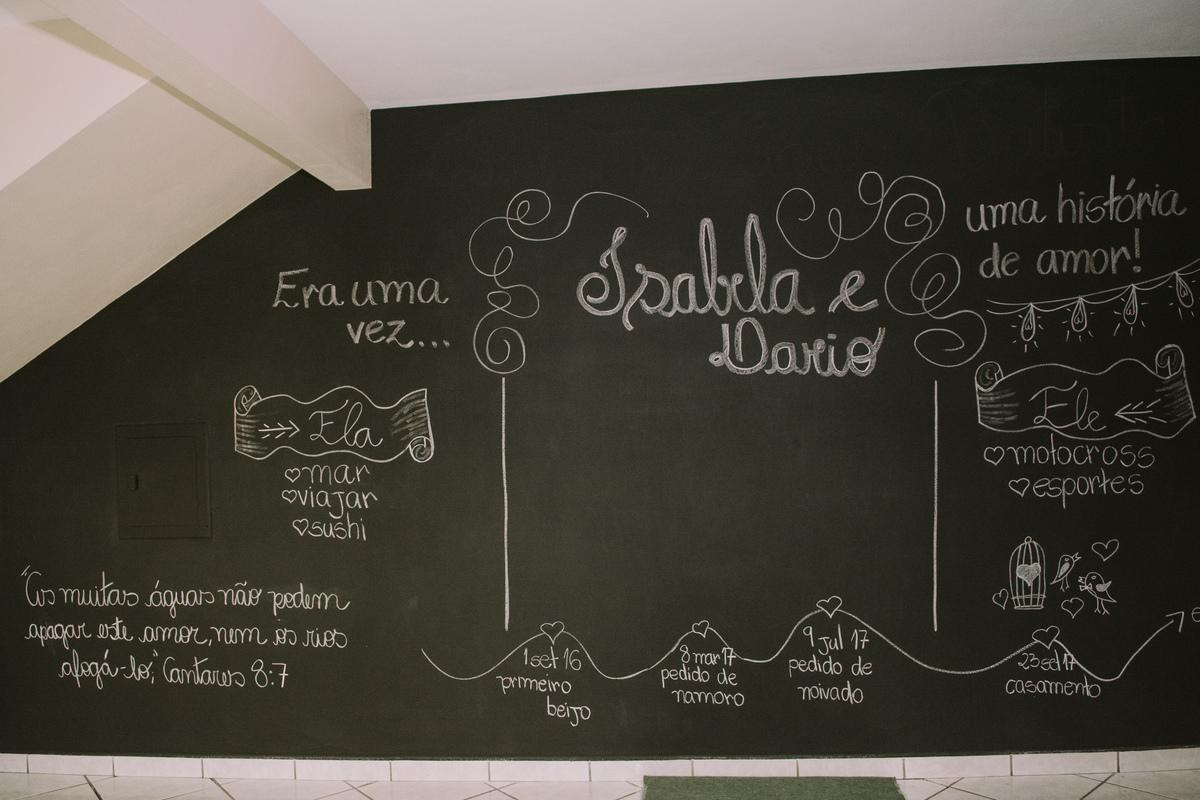 Era uma
vez...
Isabela e
Dario
uma história
de amor!
Ela
mar
viajar
sushi
Ele
motocross
esportes
"As muitas águas não podem
apagar este amor, nem os rios
afogá-lo", Cantares 8:7
1 set 16
primeiro
beijo
8 mar 17
pedido de
namoro
9 jul 17
pedido de
noivado
23 set 17
casamento